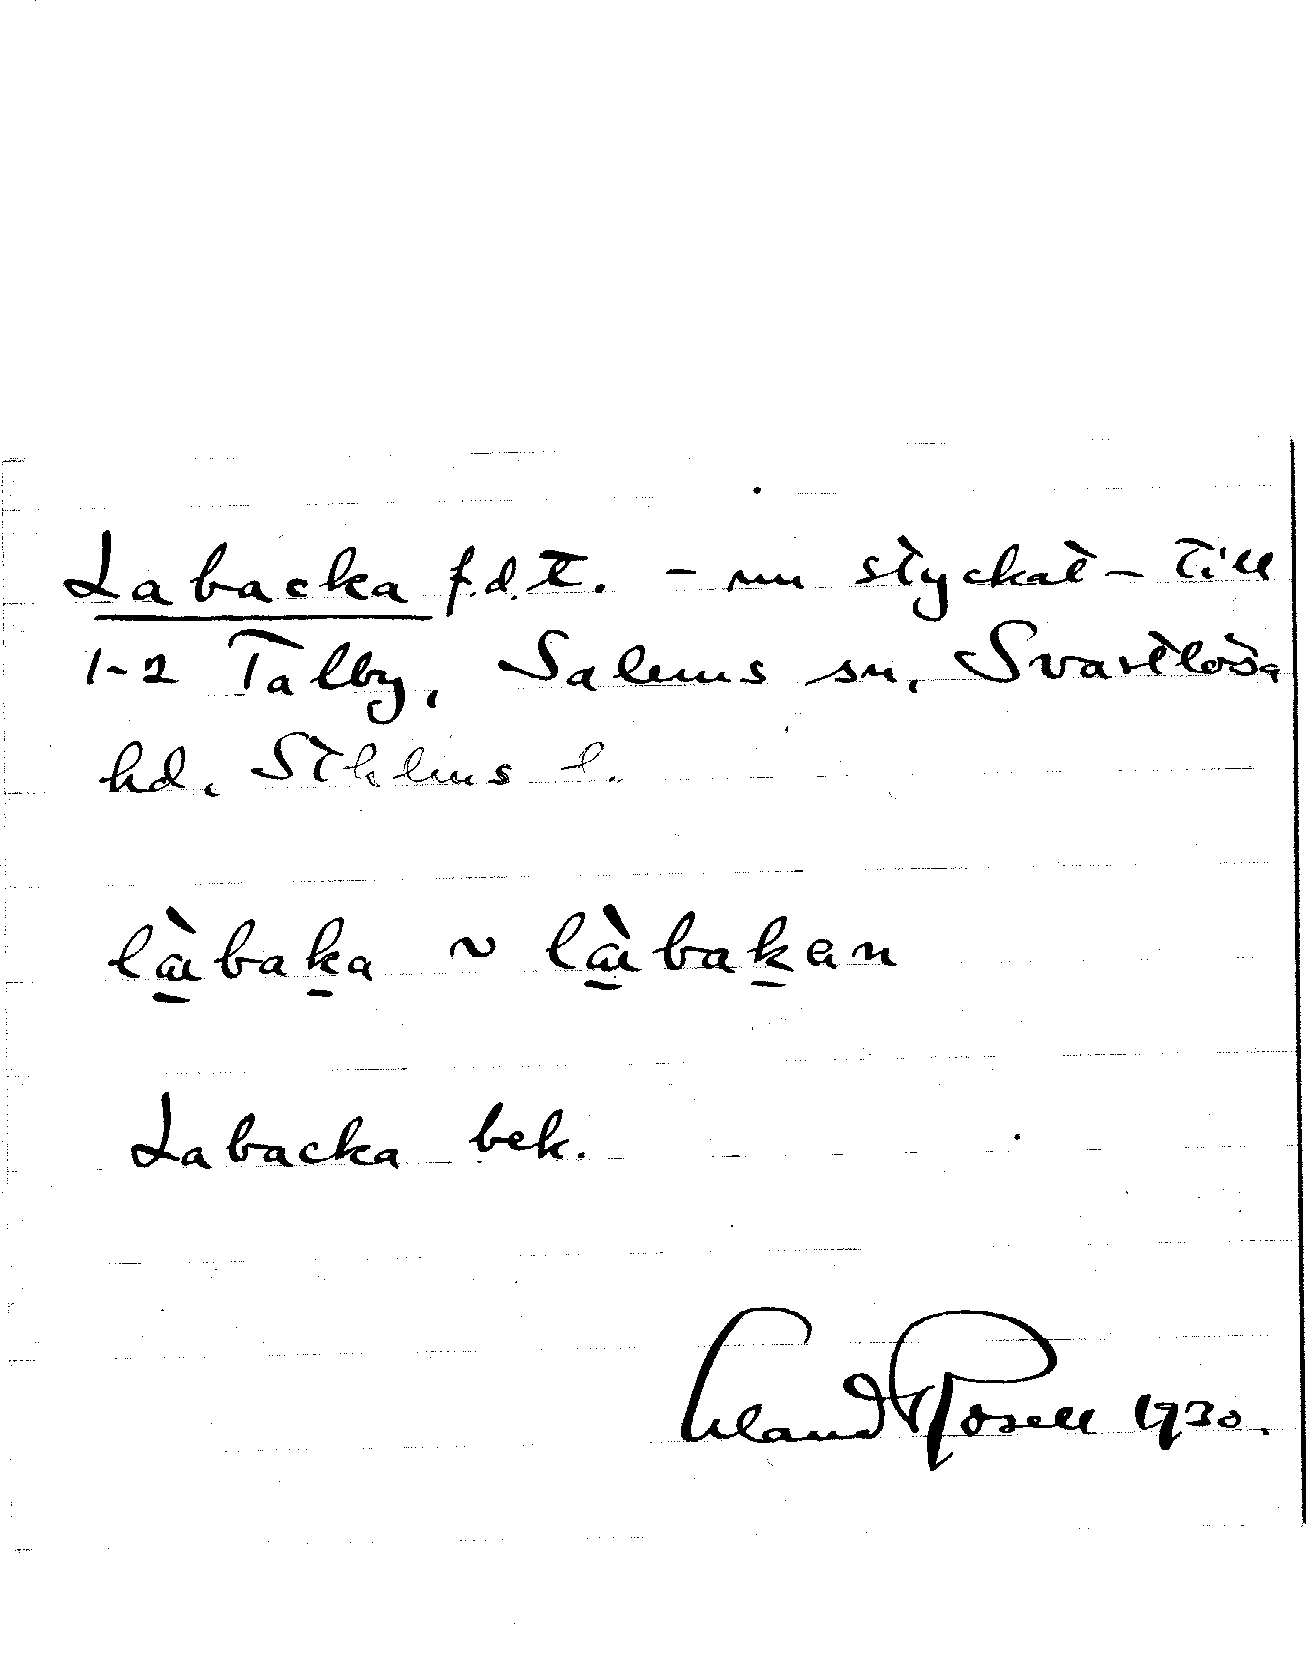 Labacka f.d.t. – nu styckat – till
1-2 Talby, Salems sn, Svartlösa
hd. Sthlms l.
là̱baḵa ~ là̱baḵan
Labacka bek.
Erland Rosell 1930.